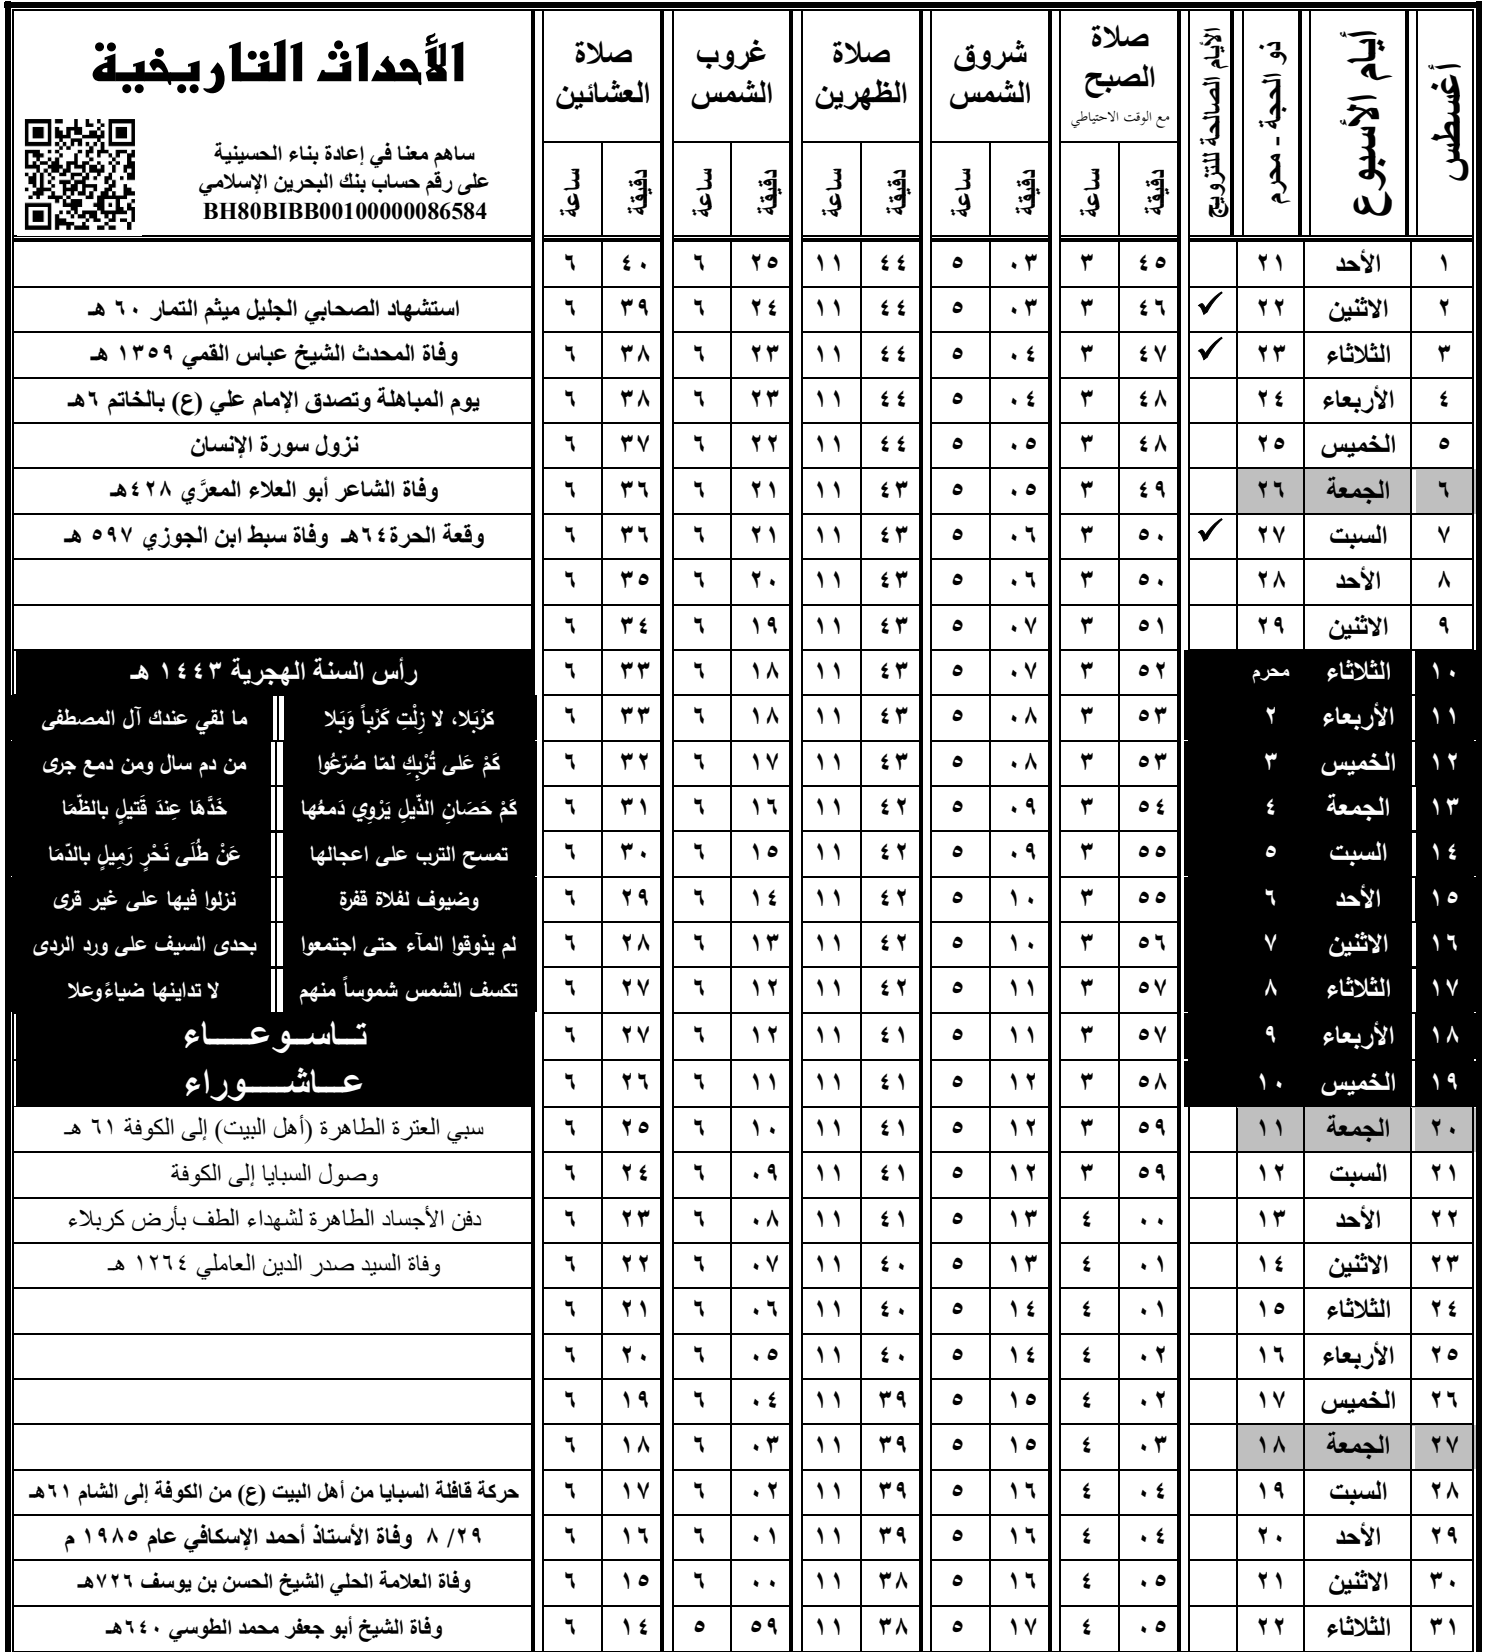 أغسطس | أيام الأسبوع | ذو الحجة - محرم | الأيام الصالحة للتزويج | صلاة الصبح مع الوقت الاحتياطي | شروق الشمس | صلاة الظهرين | غروب الشمس | صلاة العشائين | الأحداث التاريخية
ساهم معنا في إعادة بناء الحسينية
على رقم حساب بنك البحرين الإسلامي
BH80BIBB00100000086584
دقيقة | ساعة | دقيقة | ساعة | دقيقة | ساعة | دقيقة | ساعة | دقيقة | ساعة
١ | الأحد | ٢١ | ٤٥ | ٣ | ٠٣ | ٥ | ٤٤ | ١١ | ٢٥ | ٦ | ٤٠ | ٦
٢ | الاثنين | ٢٢ | ✓ | ٤٦ | ٣ | ٠٣ | ٥ | ٤٤ | ١١ | ٢٤ | ٦ | ٣٩ | ٦ | استشهاد الصحابي الجليل ميثم التمار ٦٠ هـ
٣ | الثلاثاء | ٢٣ | ✓ | ٤٧ | ٣ | ٠٤ | ٥ | ٤٤ | ١١ | ٢٣ | ٦ | ٣٨ | ٦ | وفاة المحدث الشيخ عباس القمي ١٣٥٩ هـ
٤ | الأربعاء | ٢٤ | ٤٨ | ٣ | ٠٤ | ٥ | ٤٤ | ١١ | ٢٣ | ٦ | ٣٨ | ٦ | يوم المباهلة وتصدق الإمام علي (ع) بالخاتم ٦هـ
٥ | الخميس | ٢٥ | ٤٨ | ٣ | ٠٥ | ٥ | ٤٤ | ١١ | ٢٢ | ٦ | ٣٧ | ٦ | نزول سورة الإنسان
٦ | الجمعة | ٢٦ | ٤٩ | ٣ | ٠٥ | ٥ | ٤٣ | ١١ | ٢١ | ٦ | ٣٦ | ٦ | وفاة الشاعر أبو العلاء المعرَّي ٤٢٨هـ
٧ | السبت | ٢٧ | ✓ | ٥٠ | ٣ | ٠٦ | ٥ | ٤٣ | ١١ | ٢١ | ٦ | ٣٦ | ٦ | وقعة الحرة٦٤هـ وفاة سبط ابن الجوزي ٥٩٧ هـ
٨ | الأحد | ٢٨ | ٥٠ | ٣ | ٠٦ | ٥ | ٤٣ | ١١ | ٢٠ | ٦ | ٣٥ | ٦
٩ | الاثنين | ٢٩ | ٥١ | ٣ | ٠٧ | ٥ | ٤٣ | ١١ | ١٩ | ٦ | ٣٤ | ٦
١٠ | الثلاثاء | محرم | ٥٢ | ٣ | ٠٧ | ٥ | ٤٣ | ١١ | ١٨ | ٦ | ٣٣ | ٦ | رأس السنة الهجرية ١٤٤٣ هـ
١١ | الأربعاء | ٢ | ٥٣ | ٣ | ٠٨ | ٥ | ٤٣ | ١١ | ١٨ | ٦ | ٣٣ | ٦ | كرْبَلا، لا زِلْتِ كَرْباً وَبَلا | ما لقي عندك آل المصطفى
١٢ | الخميس | ٣ | ٥٣ | ٣ | ٠٨ | ٥ | ٤٣ | ١١ | ١٧ | ٦ | ٣٢ | ٦ | كَمْ عَلى تُرْبِكِ لمّا صُرّعُوا | من دم سال ومن دمع جرى
١٣ | الجمعة | ٤ | ٥٤ | ٣ | ٠٩ | ٥ | ٤٢ | ١١ | ١٦ | ٦ | ٣١ | ٦ | كَمْ حَصَانِ الذّيلِ يَرْوِي دَمعُها | خَدَّهَا عِندَ قَتيلٍ بالظّمَا
١٤ | السبت | ٥ | ٥٥ | ٣ | ٠٩ | ٥ | ٤٢ | ١١ | ١٥ | ٦ | ٣٠ | ٦ | تمسح الترب على اعجالها | عَنْ طُلَى نَحْرٍ رَمِيلٍ بالدّمَا
١٥ | الأحد | ٦ | ٥٥ | ٣ | ١٠ | ٥ | ٤٢ | ١١ | ١٤ | ٦ | ٢٩ | ٦ | وضيوف لفلاة قفرة | نزلوا فيها على غير قرى
١٦ | الاثنين | ٧ | ٥٦ | ٣ | ١٠ | ٥ | ٤٢ | ١١ | ١٣ | ٦ | ٢٨ | ٦ | لم يذوقوا المآء حتى اجتمعوا | بحدى السيف على ورد الردى
١٧ | الثلاثاء | ٨ | ٥٧ | ٣ | ١١ | ٥ | ٤٢ | ١١ | ١٢ | ٦ | ٢٧ | ٦ | تكسف الشمس شموساً منهم | لا تداينها ضياءًوعلا
١٨ | الأربعاء | ٩ | ٥٧ | ٣ | ١١ | ٥ | ٤١ | ١١ | ١٢ | ٦ | ٢٧ | ٦ | تـــاســـوعـــــاء
١٩ | الخميس | ١٠ | ٥٨ | ٣ | ١٢ | ٥ | ٤١ | ١١ | ١١ | ٦ | ٢٦ | ٦ | عـــاشـــــوراء
٢٠ | الجمعة | ١١ | ٥٩ | ٣ | ١٢ | ٥ | ٤١ | ١١ | ١٠ | ٦ | ٢٥ | ٦ | سبي العترة الطاهرة (أهل البيت) إلى الكوفة ٦١ هـ
٢١ | السبت | ١٢ | ٥٩ | ٣ | ١٢ | ٥ | ٤١ | ١١ | ٠٩ | ٦ | ٢٤ | ٦ | وصول السبايا إلى الكوفة
٢٢ | الأحد | ١٣ | ٠٠ | ٤ | ١٣ | ٥ | ٤١ | ١١ | ٠٨ | ٦ | ٢٣ | ٦ | دفن الأجساد الطاهرة لشهداء الطف بأرض كربلاء
٢٣ | الاثنين | ١٤ | ٠١ | ٤ | ١٣ | ٥ | ٤٠ | ١١ | ٠٧ | ٦ | ٢٢ | ٦ | وفاة السيد صدر الدين العاملي ١٢٦٤ هـ
٢٤ | الثلاثاء | ١٥ | ٠١ | ٤ | ١٤ | ٥ | ٤٠ | ١١ | ٠٦ | ٦ | ٢١ | ٦
٢٥ | الأربعاء | ١٦ | ٠٢ | ٤ | ١٤ | ٥ | ٤٠ | ١١ | ٠٥ | ٦ | ٢٠ | ٦
٢٦ | الخميس | ١٧ | ٠٢ | ٤ | ١٥ | ٥ | ٣٩ | ١١ | ٠٤ | ٦ | ١٩ | ٦
٢٧ | الجمعة | ١٨ | ٠٣ | ٤ | ١٥ | ٥ | ٣٩ | ١١ | ٠٣ | ٦ | ١٨ | ٦
٢٨ | السبت | ١٩ | ٠٤ | ٤ | ١٦ | ٥ | ٣٩ | ١١ | ٠٢ | ٦ | ١٧ | ٦ | حركة قافلة السبايا من أهل البيت (ع) من الكوفة إلى الشام ٦١هـ
٢٩ | الأحد | ٢٠ | ٠٤ | ٤ | ١٦ | ٥ | ٣٩ | ١١ | ٠١ | ٦ | ١٦ | ٦ | ٢٩/ ٨ وفاة الأستاذ أحمد الإسكافي عام ١٩٨٥ م
٣٠ | الاثنين | ٢١ | ٠٥ | ٤ | ١٦ | ٥ | ٣٨ | ١١ | ٠٠ | ٦ | ١٥ | ٦ | وفاة العلامة الحلي الشيخ الحسن بن يوسف ٧٢٦هـ
٣١ | الثلاثاء | ٢٢ | ٠٥ | ٤ | ١٧ | ٥ | ٣٨ | ١١ | ٥٩ | ٥ | ١٤ | ٦ | وفاة الشيخ أبو جعفر محمد الطوسي ٦٤٠هـ